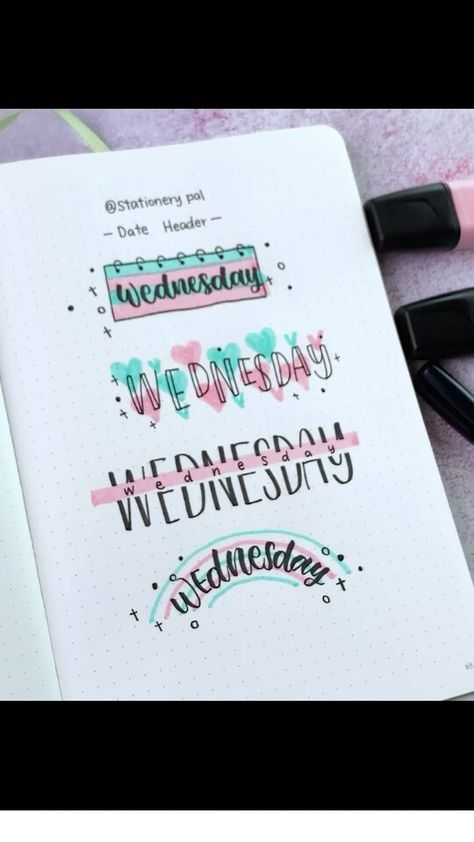 @Stationery pal
— Date Header —
Wednesday
WEDNESDAY
WEDNESDAY
wednesday
Wednesday
65